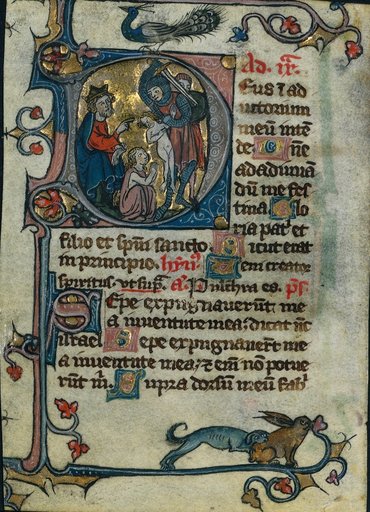 Ad. ix.
Eus i ad
iutorium
meū intē
de. Dn̄e
ad adiuuan
dū me fes
tina. Glo
ria pat' et
filio et spū sancto Sicut erat
in principio. hȳn' Uem creator
spiritus. vt sup̄. a. Pulchra es. p̄s
Sepe expugnauerūt me
a iuuentute mea: dicat nc̄
israel Sepe expugnauerūt me
a iuuentute mea: ⁊ eni nō potue
rūt m̄. Supra dorsū meū fab'